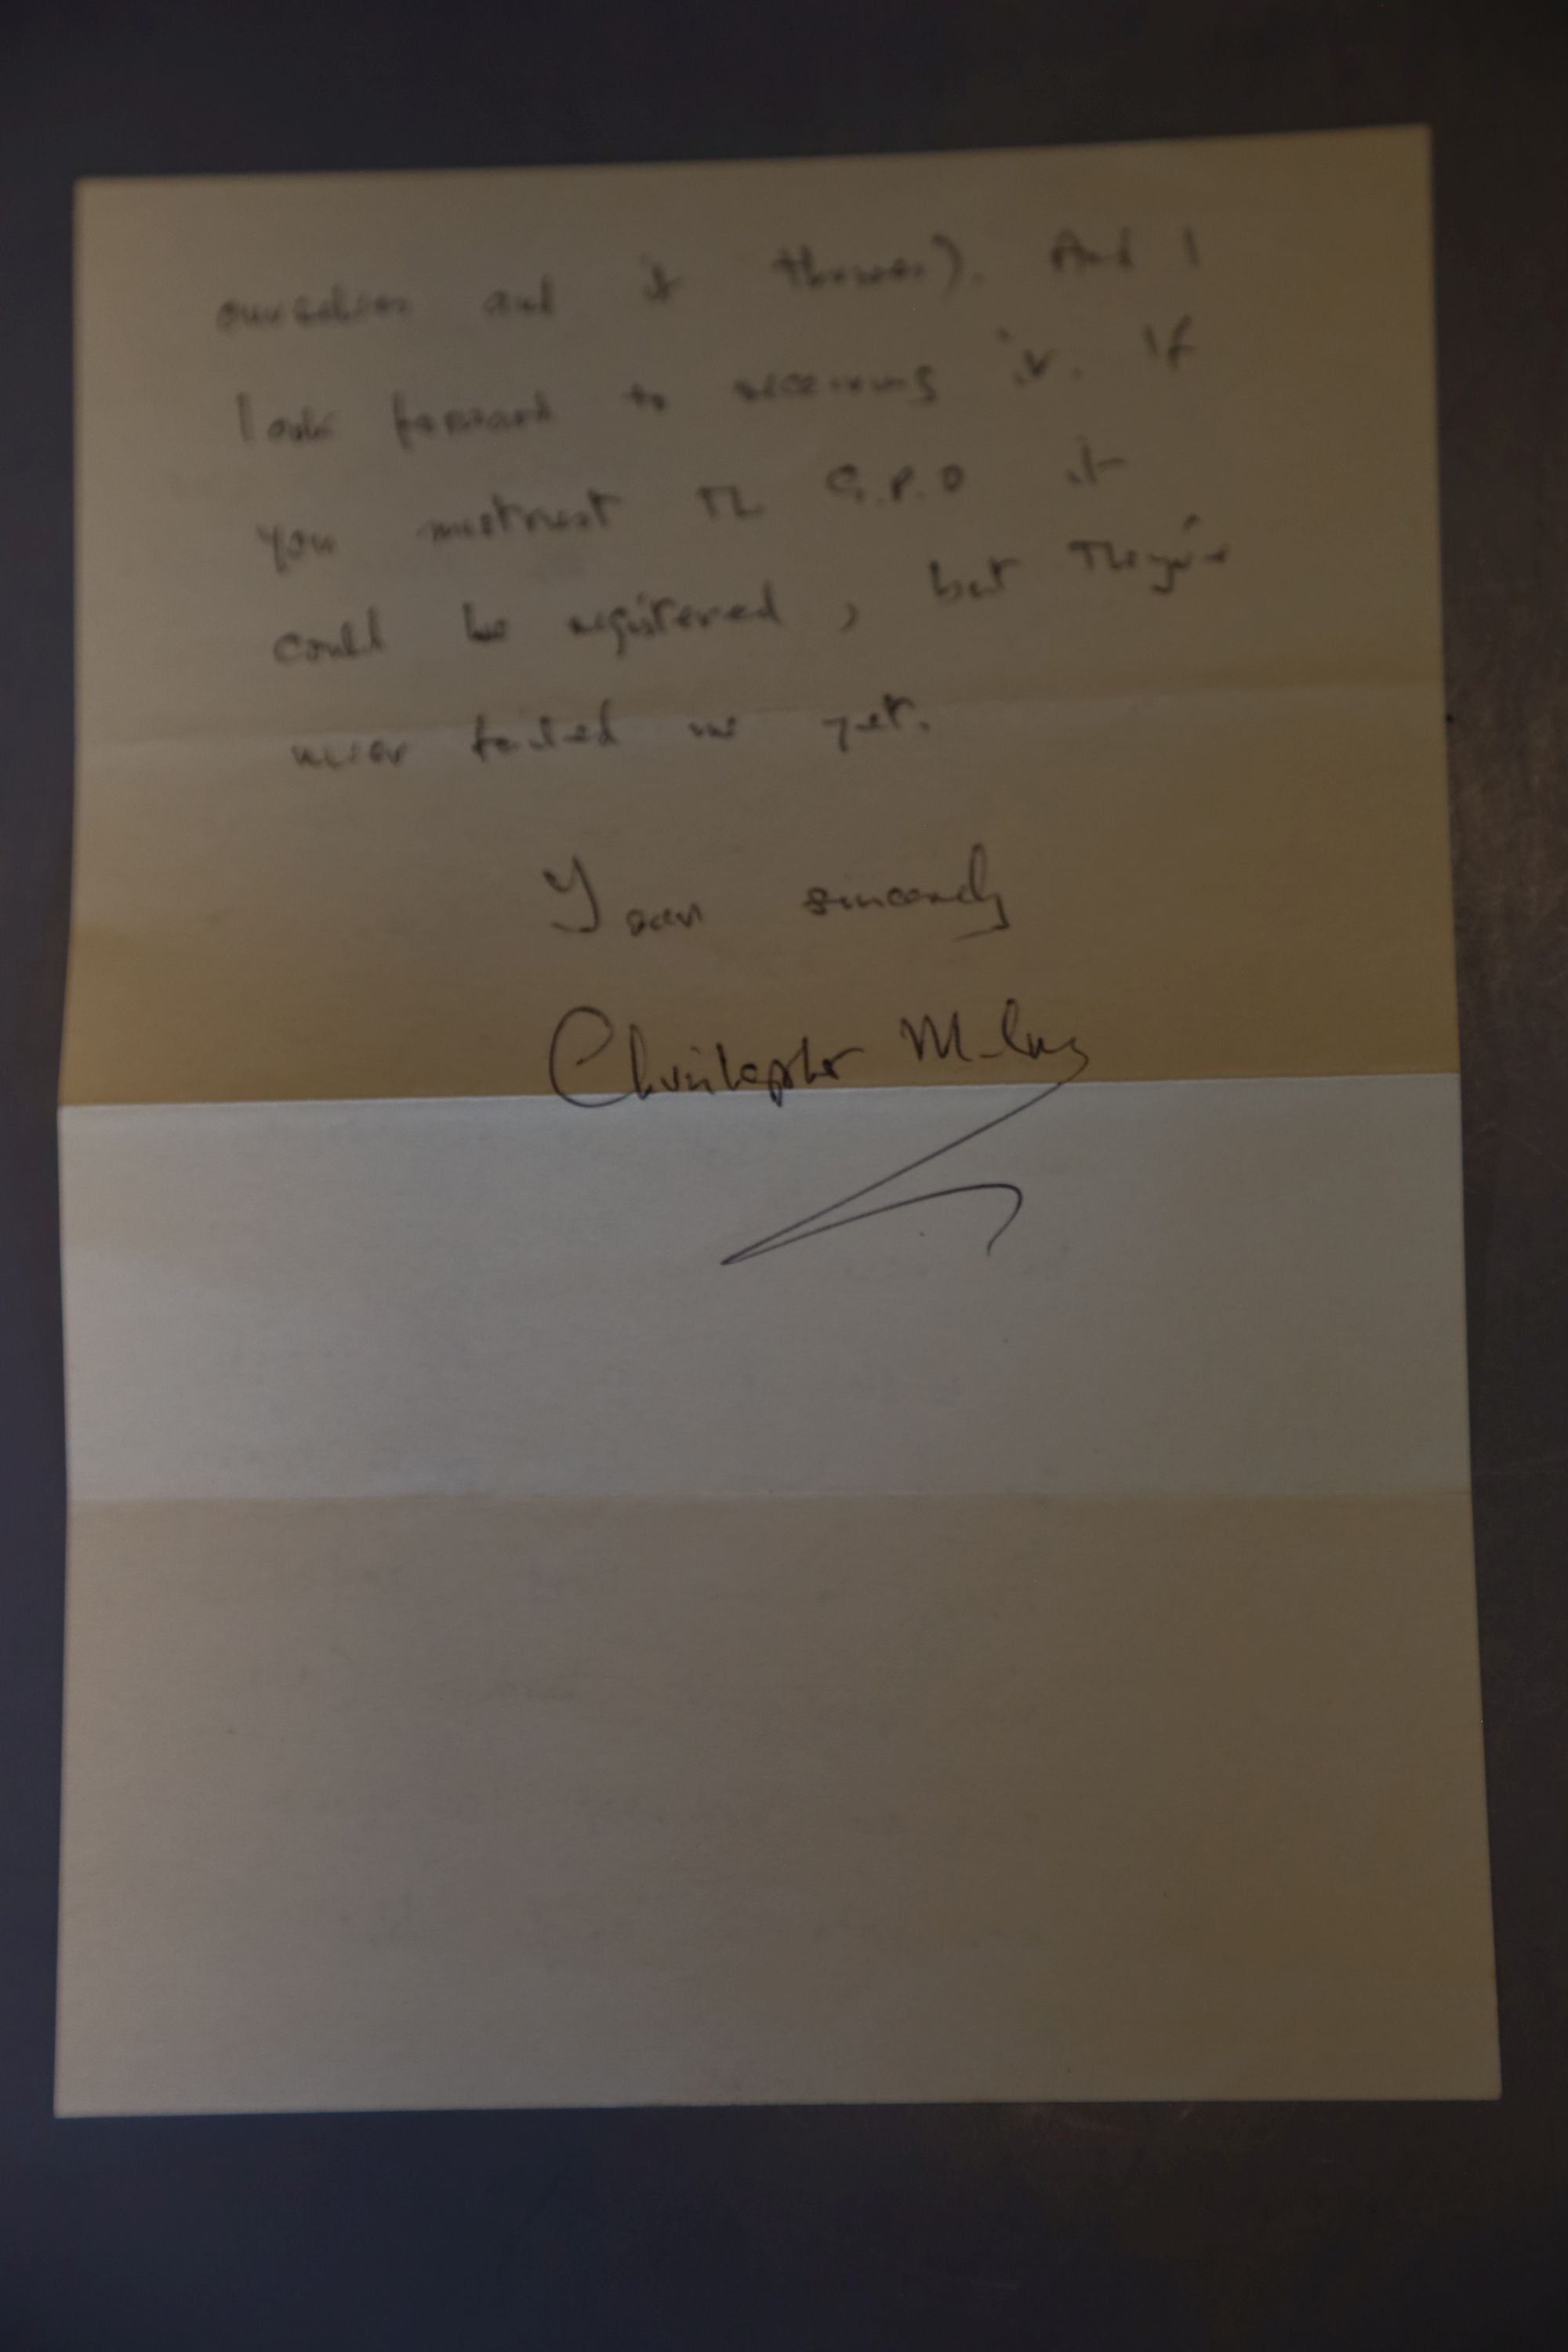 ourselves and it therein). And I
look forward to receiving it. If
you mistrust the G.P.O it
could be registered, but they've
never failed me yet.
Yours sincerely
Christopher Milne